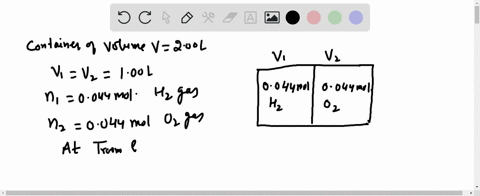 Container of volume V=2.00L
V₁ = V₂ = 1.00L
n₁ = 0.044 mol. H₂ gas
n₂ = 0.044 mol O₂ gas
At
V₁ V₂
0.044mol 0.044mol
H₂ O₂